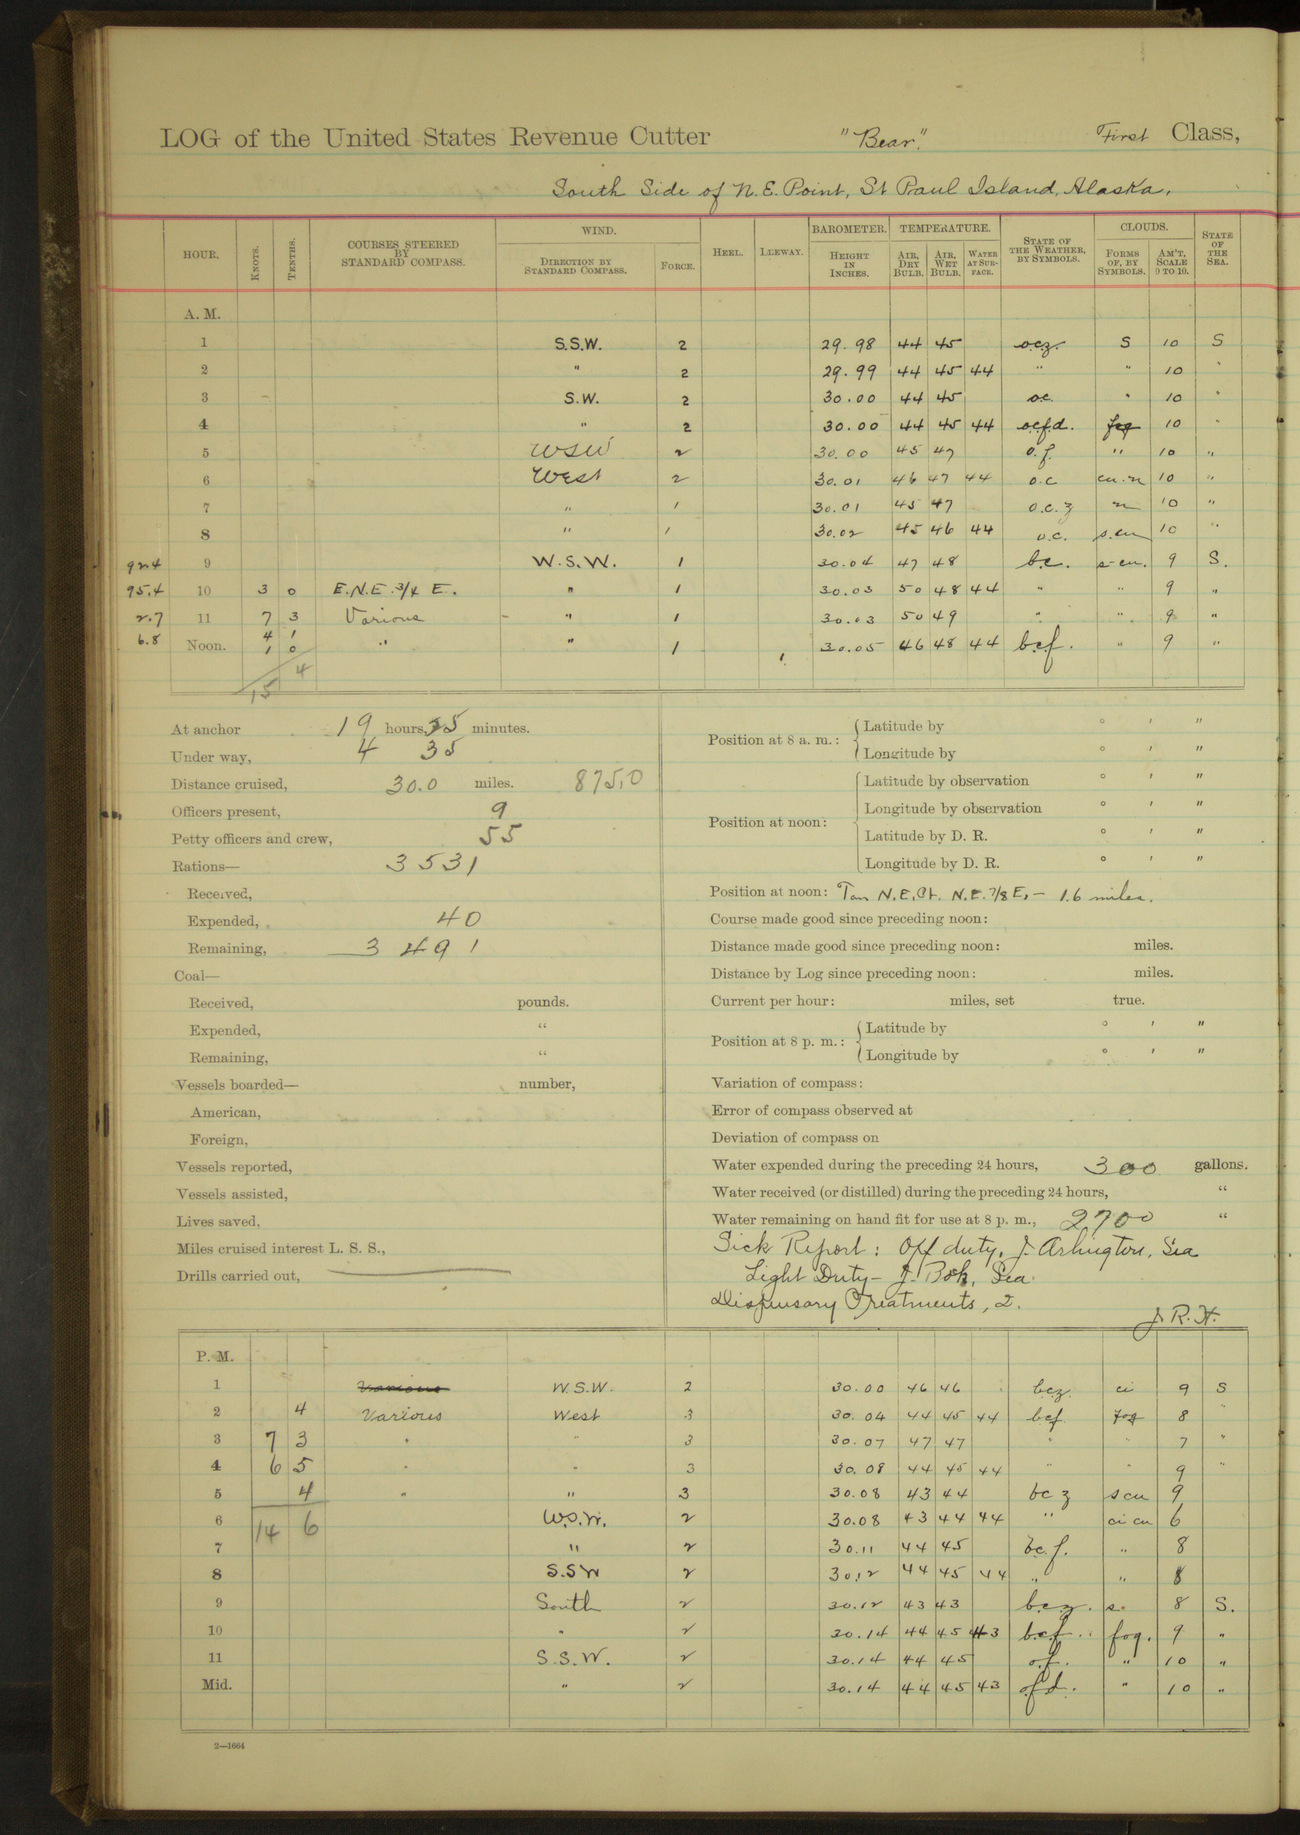 LOG of the United States Revenue Cutter "Bear." First Class,
South Side of N.E. Point, St Paul Island, Alaska.
HOUR. KNOTS. TENTHS. COURSES STEERED BY STANDARD COMPASS. WIND. DIRECTION BY STANDARD COMPASS. FORCE. HEEL. LEEWAY. BAROMETER. HEIGHT IN INCHES. TEMPERATURE. AIR, DRY BULB. AIR, WET BULB. WATER AT SURFACE. STATE OF THE WEATHER, BY SYMBOLS. CLOUDS. FORMS OF, BY SYMBOLS. AM'T, SCALE 0 TO 10. STATE OF THE SEA.
A. M.
1 S.S.W. 2 29.98 44 45 ocz. S 10 S
2 " 2 29.99 44 45 44 " " 10 "
3 S.W. 2 30.00 44 45 oc. " 10 "
4 " 2 30.00 44 45 44 ocfd. fog 10 "
5 WSW 2 30.00 45 47 o.f. " 10 "
6 West 2 30.01 46 47 44 o.c cu.n 10 "
7 " 1 30.01 45 47 o.c.z n 10 "
8 " 1 30.02 45 46 44 o.c. s.cu 10 "
92.4 9 W.S.W. 1 30.04 47 48 bc. s-cu. 9 S.
95.4 10 3 0 E.N.E. 3/4 E. " 1 30.03 50 48 44 " " 9 "
2.7 11 7 3 Various " 1 30.03 50 49 " " 9 "
6.8 Noon. 4 1 1 0 " " 1 30.05 46 48 44 bcf. " 9 "
15 4
At anchor 19 hours, 25 minutes.
Under way, 4 35
Distance cruised, 30.0 miles. 875.0
Officers present, 9
Petty officers and crew, 55
Rations— 3531
Received,
Expended, 40
Remaining, 3491
Coal—
Received, pounds.
Expended, "
Remaining, "
Vessels boarded— number,
American,
Foreign,
Vessels reported,
Vessels assisted,
Lives saved,
Miles cruised interest L. S. S.,
Drills carried out,
Position at 8 a. m.: Latitude by ° ' "
Longitude by ° ' "
Position at noon: Latitude by observation ° ' "
Longitude by observation ° ' "
Latitude by D. R. ° ' "
Longitude by D. R. ° ' "
Position at noon: Tan N.E. Pt. N.E. 7/8 E. – 1.6 miles.
Course made good since preceding noon:
Distance made good since preceding noon: miles.
Distance by Log since preceding noon: miles.
Current per hour: miles, set true.
Position at 8 p. m.: Latitude by ° ' "
Longitude by ° ' "
Variation of compass:
Error of compass observed at
Deviation of compass on
Water expended during the preceding 24 hours, 300 gallons.
Water received (or distilled) during the preceding 24 hours, "
Water remaining on hand fit for use at 8 p. m., 2700 "
Sick Report: Off duty, J. Arlington, Sea
Light Duty – J. Sea.
Dispensary Treatments, 2.
J. R. H.
P. M.
1 Various W.S.W. 2 30.00 46 46 bcz. ci 9 S
2 4 Various West 3 30.04 44 45 44 bcf. fog 8 "
3 7 3 " " 3 30.07 47 47 " " 7 "
4 6 5 " " 3 30.08 44 45 44 " " 9 "
5 4 " " 3 30.08 43 44 bc z s cu 9
6 W.S.W. 2 30.08 43 44 44 " ci cu 6
14 6
7 " 2 30.11 44 45 bc.f. " 8
8 S.SW 2 30.12 44 45 44 " " 8
9 South 2 30.12 43 43 b.c.z. s. 8 S.
10 " 2 30.14 44 45 43 bcf. fog. 9 "
11 S.S.W. 2 30.14 44 45 o.f. " 10 "
Mid. " 2 30.14 44 45 43 ofd. " 10 "
2—1664